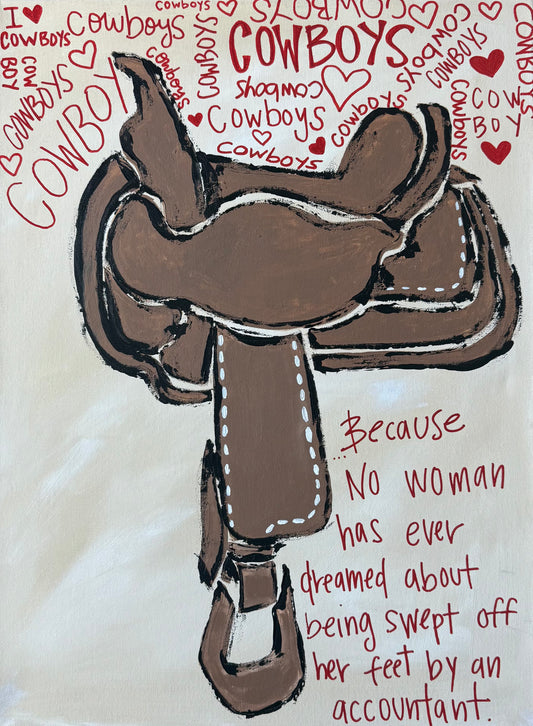 I ♥ COWBOYS
COWBOY
COWBOYS
COWBOY
Cowboys
cowboys
cowboys
COWBOYS
COWBOYS
COWBOYS
cowboys
Cowboys
cowboys
cowboys
COWBOYS
cowboys
cowboys
COWBOYS
cowboys
COWBOY
COWBOYS
...Because
No woman
has ever
dreamed about
being swept off
her feet by an
accountant